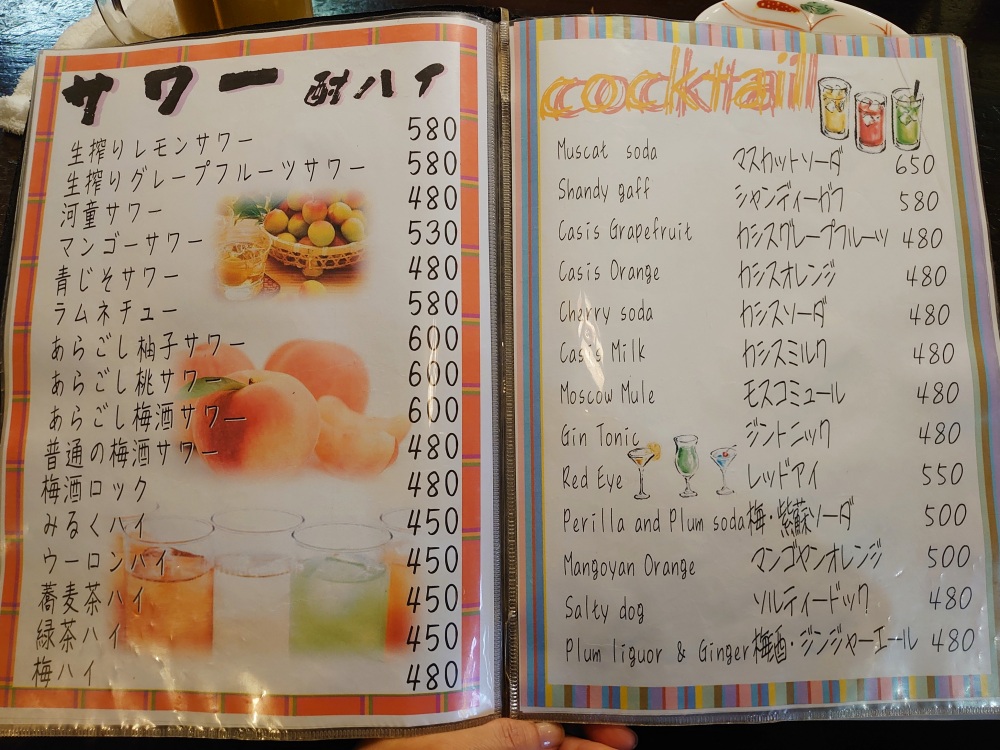 サワー 酎ハイ
生搾りレモンサワー 580
生搾りグレープフルーツサワー 580
河童サワー 480
マンゴーサワー 530
青じそサワー 480
ラムネチュー 580
あらごし柚子サワー 600
あらごし桃サワー 600
あらごし梅酒サワー 600
普通の梅酒サワー 480
梅酒ロック 480
みるくハイ 450
ウーロンハイ 450
蕎麦茶ハイ 450
緑茶ハイ 450
梅ハイ 480
cocktail
Muscat soda マスカットソーダ 650
Shandy gaff シャンディーガフ 580
Casis Grapefruit カシスグレープフルーツ 480
Casis Orange カシスオレンジ 480
Cherry soda カシスソーダ 480
Casis Milk カシスミルク 480
Moscow Mule モスコミュール 480
Gin Tonic ジントニック 480
Red Eye レッドアイ 550
Perilla and Plum soda 梅・紫蘇ソーダ 500
Mangoyan Orange マンゴヤンオレンジ 500
Salty dog ソルティードック 480
Plum liguor & Ginger 梅酒・ジンジャーエール 480